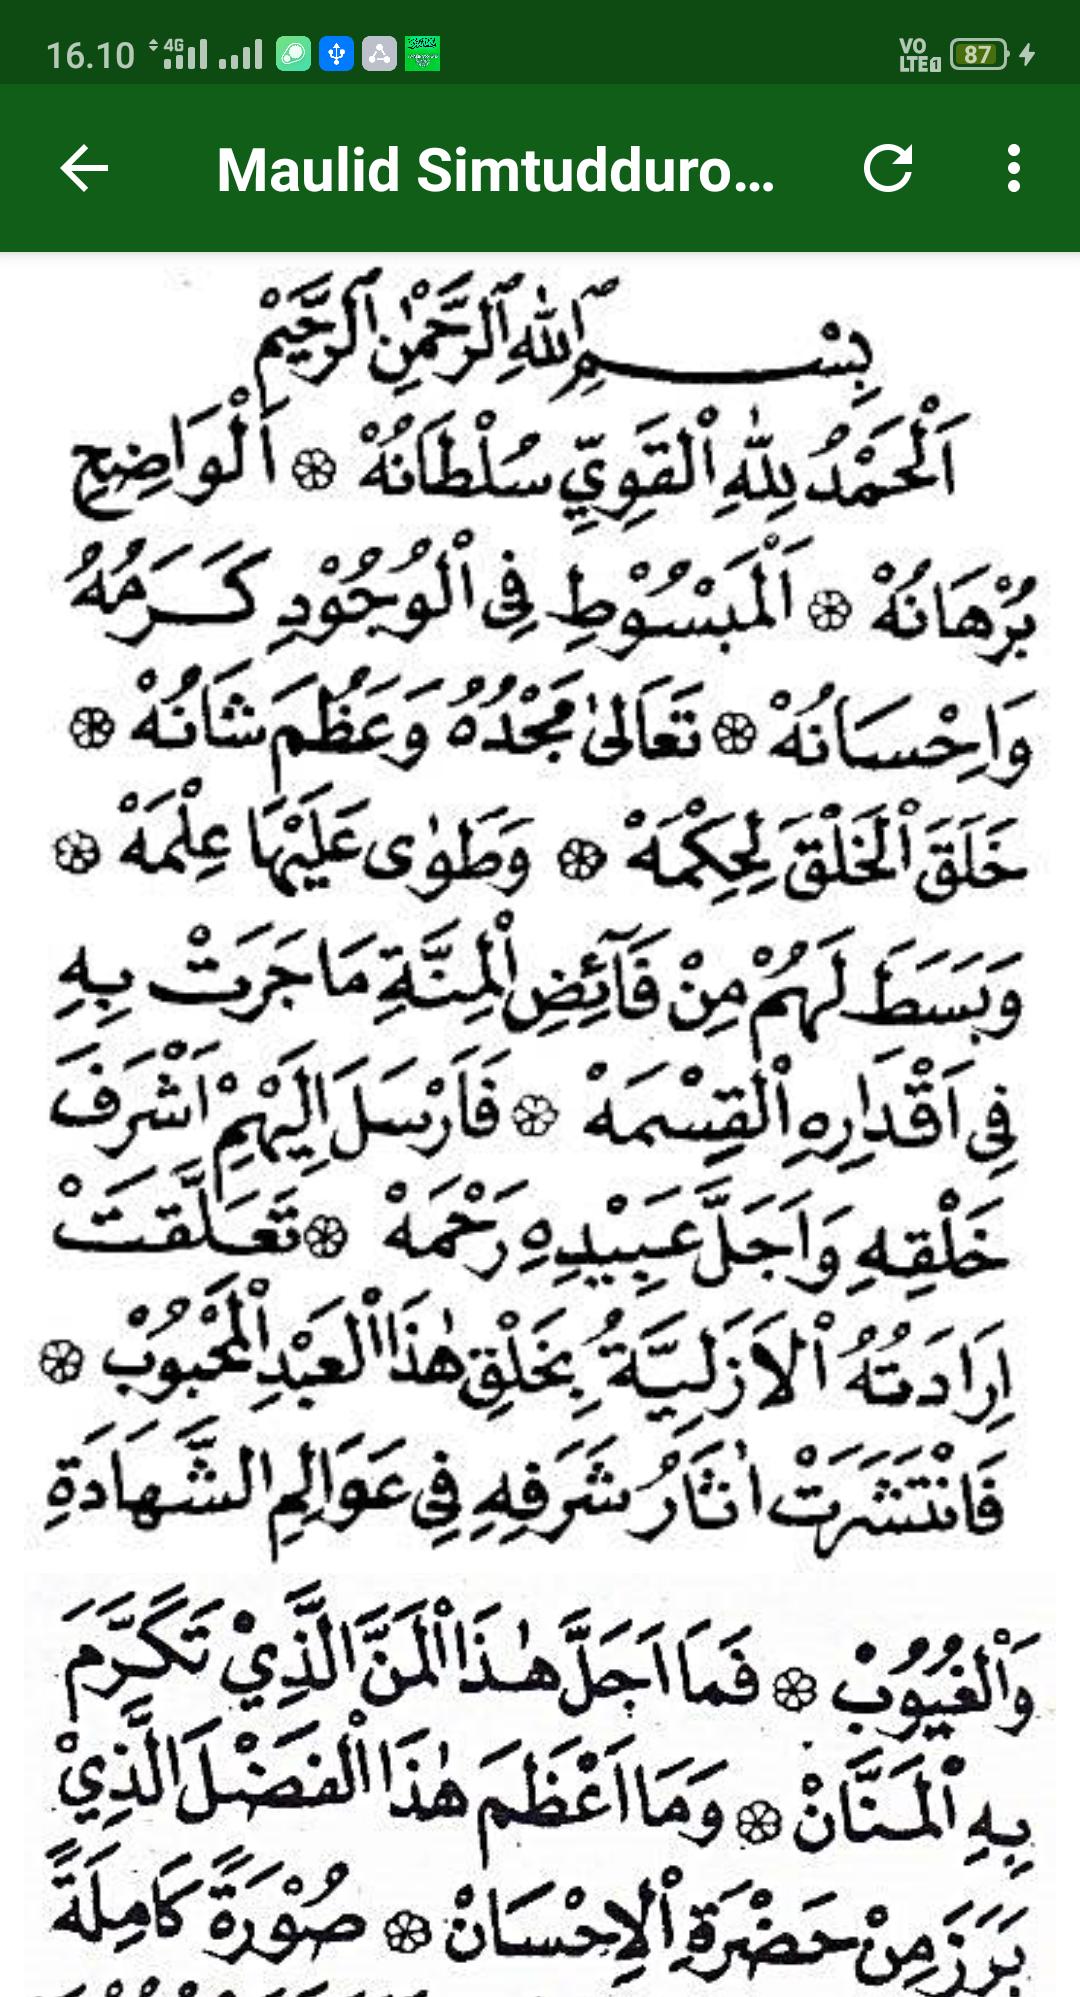 16.10 4G VO LTE1 87
Maulid Simtudduro...
بِسْــــمِ اللهِ الرَّحْمٰنِ الرَّحِيْمِ
اَلْحَمْدُ لِلّٰهِ الْقَوِيِّ سُلْطَانُهْ ۞ اَلْوَاضِحِ
بُرْهَانُهْ ۞ اَلْمَبْسُوْطِ فِى الْوُجُوْدِ كَـرَمُهُ
وَاِحْسَانُهْ ۞ تَعَالٰى مَجْدُهُ وَعَظُمَ شَانُهْ ۞
خَلَقَ الْخَلْقَ لِحِكْمَهْ ۞ وَطَوٰى عَلَيْهَا عِلْمَهْ ۞
وَبَسَطَ لَهُمْ مِنْ فَآئِضِ الْمِنَّةِ مَا جَرَتْ بِهِ
فِى اَقْدَارِهِ الْقِسْمَهْ ۞ فَاَرْسَلَ اِلَيْهِمْ اَشْرَفَ
خَلْقِهِ وَاَجَلَّ عَبِيْدِهِ رَحْمَهْ ۞ تَعَلَّقَتْ
اِرَادَتُهُ الْاَزَلِيَّةُ بِخَلْقِ هٰذَا الْعَبْدِ الْمَحْبُوْبْ ۞
فَانْتَشَرَتْ اٰثَارُ شَرَفِهِ فِى عَوَالِمِ الشَّهَادَةِ
وَالْغُيُوْبْ ۞ فَمَا اَجَلَّ هٰذَا الْمَنَّ الَّذِيْ تَكَرَّمَ
بِهِ الْمَنَّانْ ۞ وَمَا اَعْظَمَ هٰذَا الْفَضْلَ الَّذِيْ
بَرَزَ مِنْ حَضْرَةِ الْاِحْسَانْ ۞ صُوْرَةً كَامِلَةً